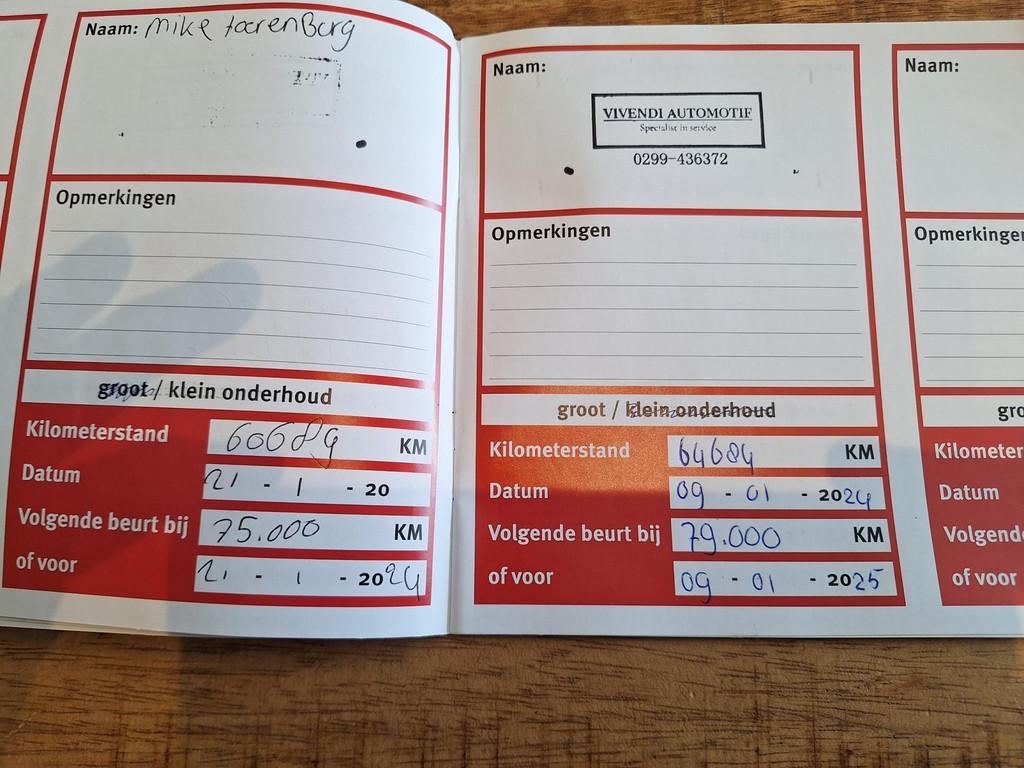 Naam: Mike toorenBurg
Opmerkingen
groot / klein onderhoud
Kilometerstand 60689 KM
Datum 21 - 1 - 20
Volgende beurt bij 75.000 KM
of voor 21 - 1 - 2024
Naam:
VIVENDI AUTOMOTIF
Specialist in service
0299-436372
Opmerkingen
groot / klein onderhoud
Kilometerstand 64684 KM
Datum 09 - 01 - 2024
Volgende beurt bij 79.000 KM
of voor 09 - 01 - 2025
Naam:
Opmerkingen
gro
Kilometer
Datum
Volgend
of voor